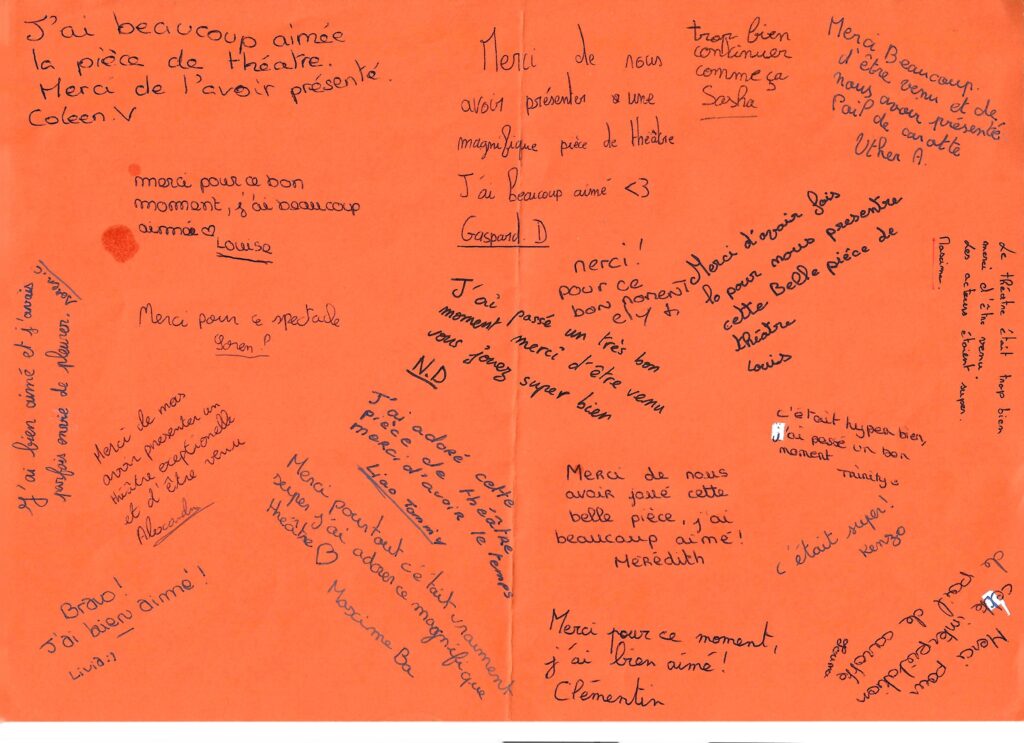 J'ai beaucoup aimée
la pièce de théatre.
Merci de l'avoir présenté.
Coleen.V
Merci de nous
avoir présenter une
magnifique pièce de théâtre
J'ai beaucoup aimé <3
Gaspard. D
trop bien
continuer
comme ça
Sasha
Merci Beaucoup.
d'être venu et de
nous avoir présenté
Poil de carotte
Uther A.
merci pour ce bon
moment, j'ai beaucoup
aimée ♡
Louise
Merci pour ce spectacle
Soren!
J'ai bien aimé et j'avais
parfois envie de pleurer.
J'ai passé un très bon
moment merci d'être venu
vous jouez super bien
N.D
merci!
pour ce
bon moment
Merci d'avoir fais
pour nous presentre
cette Belle piéce de
théâtre
Louis
Le théâtre était trop bien
merci d'être venu.
Les acteurs étaient super.
Maxime.
Merci de
avoir presenter un
théâtre exeptionelle
et d'être venu
Alexandre
J'ai adoré cette
pièce de théâtre
merci d'avoir le temps
Liao Tommy
Merci pour tout c'était vraiment
super j'ai adorer ce magnifique
théâtre ♡
Maxime Ba
c'était hyper bien,
j'ai passé un bon
moment
Trinity
Merci de nous
avoir joué cette
belle pièce, j'ai
beaucoup aimé!
Meredith
c'était super!
Kenzo
Bravo!
J'ai bien aimé!
Livia:)
Merci pour ce moment,
j'ai bien aimé!
Clémentin
Merci pour
cette interprétation
de poil de carotte